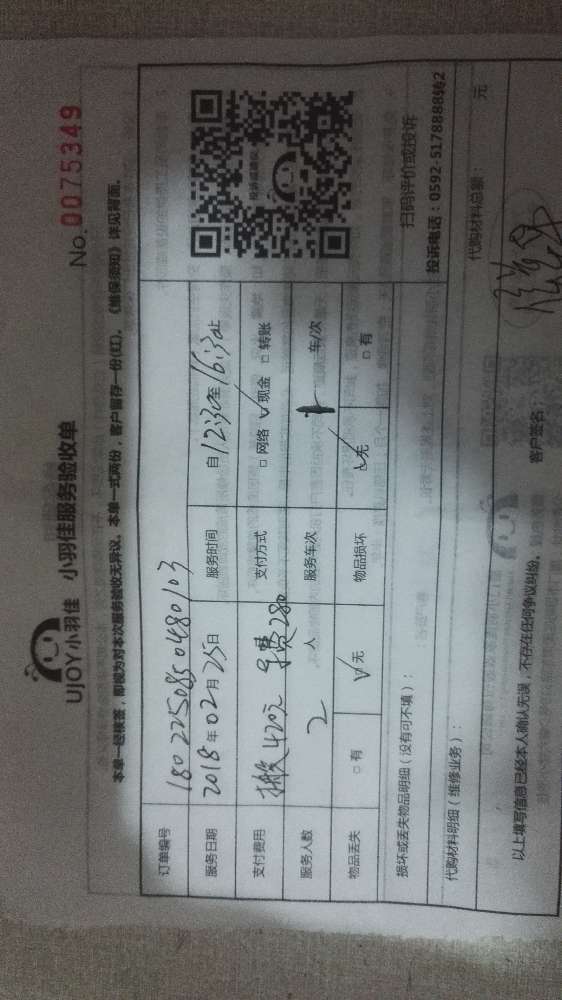 UJOY小羽佳 小羽佳服务验收单
No. 0075349
本单一经核签,即视为对本次服务验收无异议。本单一式两份,客户留存一份(红)。《维保须知》详见背面。
订单编号 1802250850480103
服务日期 2018年02月25日 服务时间 自12:30至16:30止
支付费用 搬412元 车费280 支付方式 □网络 ✓现金 □转账
服务人数 2人 服务车次 1 车/次
物品丢失 □有 ✓无 物品损坏 ✓无 □有
投诉或建议
扫码评价或投诉
投诉电话:0592-5178888转2
损坏或丢失物品明细(没有可不填):
代购材料明细(维修业务): 代购材料总额: 元
以上填写信息已经本人确认无误,不存在任何争议纠纷。 客户签名: